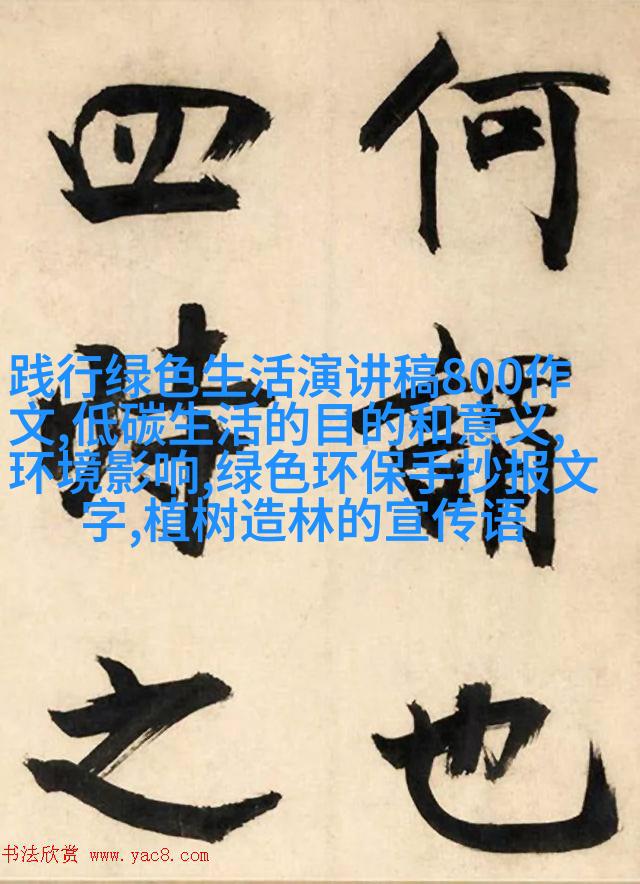 何謂也
四時之
践行绿色生活演讲稿800作
文,低碳生活的目的和意义,
环境影响,绿色环保手抄报文
字,植树造林的宣传语
书法欣赏 www.yac8.com